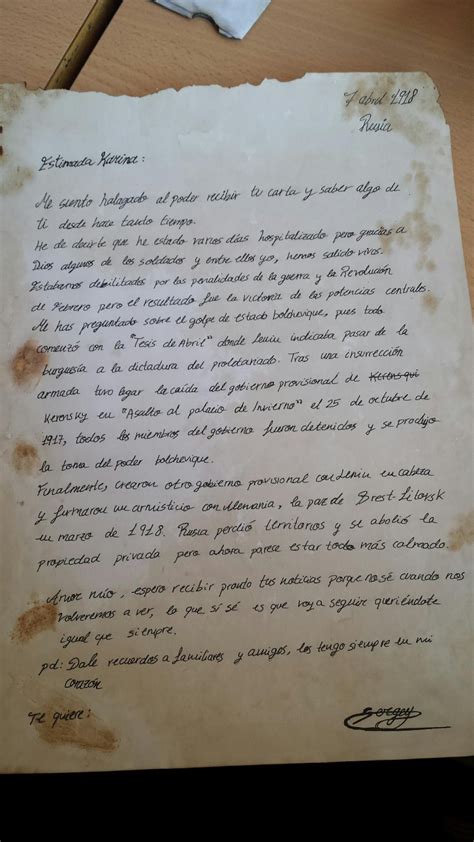 7 abril 1918
Rusia
Estimada Karina:
Me siento halagado al poder recibir tu carta y saber algo de
ti desde hace tanto tiempo.
He de decirte que he estado varios días hospitalizado pero gracias a
Dios algunos de los soldados y entre ellos yo, hemos salido vivos.
Estabamos debilitados por las penalidades de la guerra y la Revolución
de Febrero pero el resultado fue la victoria de las potencias centrales.
Me has preguntado sobre el golpe de estado bolchevique, pues todo
comenzó con la "Tesis de Abril" donde Lenin indicaba pasar de la
burguesía a la dictadura del proletariado. Tras una insurrección
armada tuvo lugar la caída del gobierno provisional de Kerensqui
Kerensky en "Asalto al palacio de Invierno" el 25 de octubre de
1917, todos los miembros del gobierno fueron detenidos y se produjo
la toma del poder bolchevique.
Finalmente, crearon otro gobierno provisional con Lenin en cabeza
y firmaron un armisticio con Alemania, la paz de Brest-Litovsk
en marzo de 1918. Rusia perdió territorios y se abolió la
propiedad privada pero ahora parece estar todo más calmado.
Amor mío, espero recibir pronto tus noticias porque no sé cuando nos
volveremos a ver, lo que sí sé es que voy a seguir queriéndote
igual que siempre.
pd: Dale recuerdos a familiares y amigos, los tengo siempre en mi
corazón
Te quiere:
Sergey